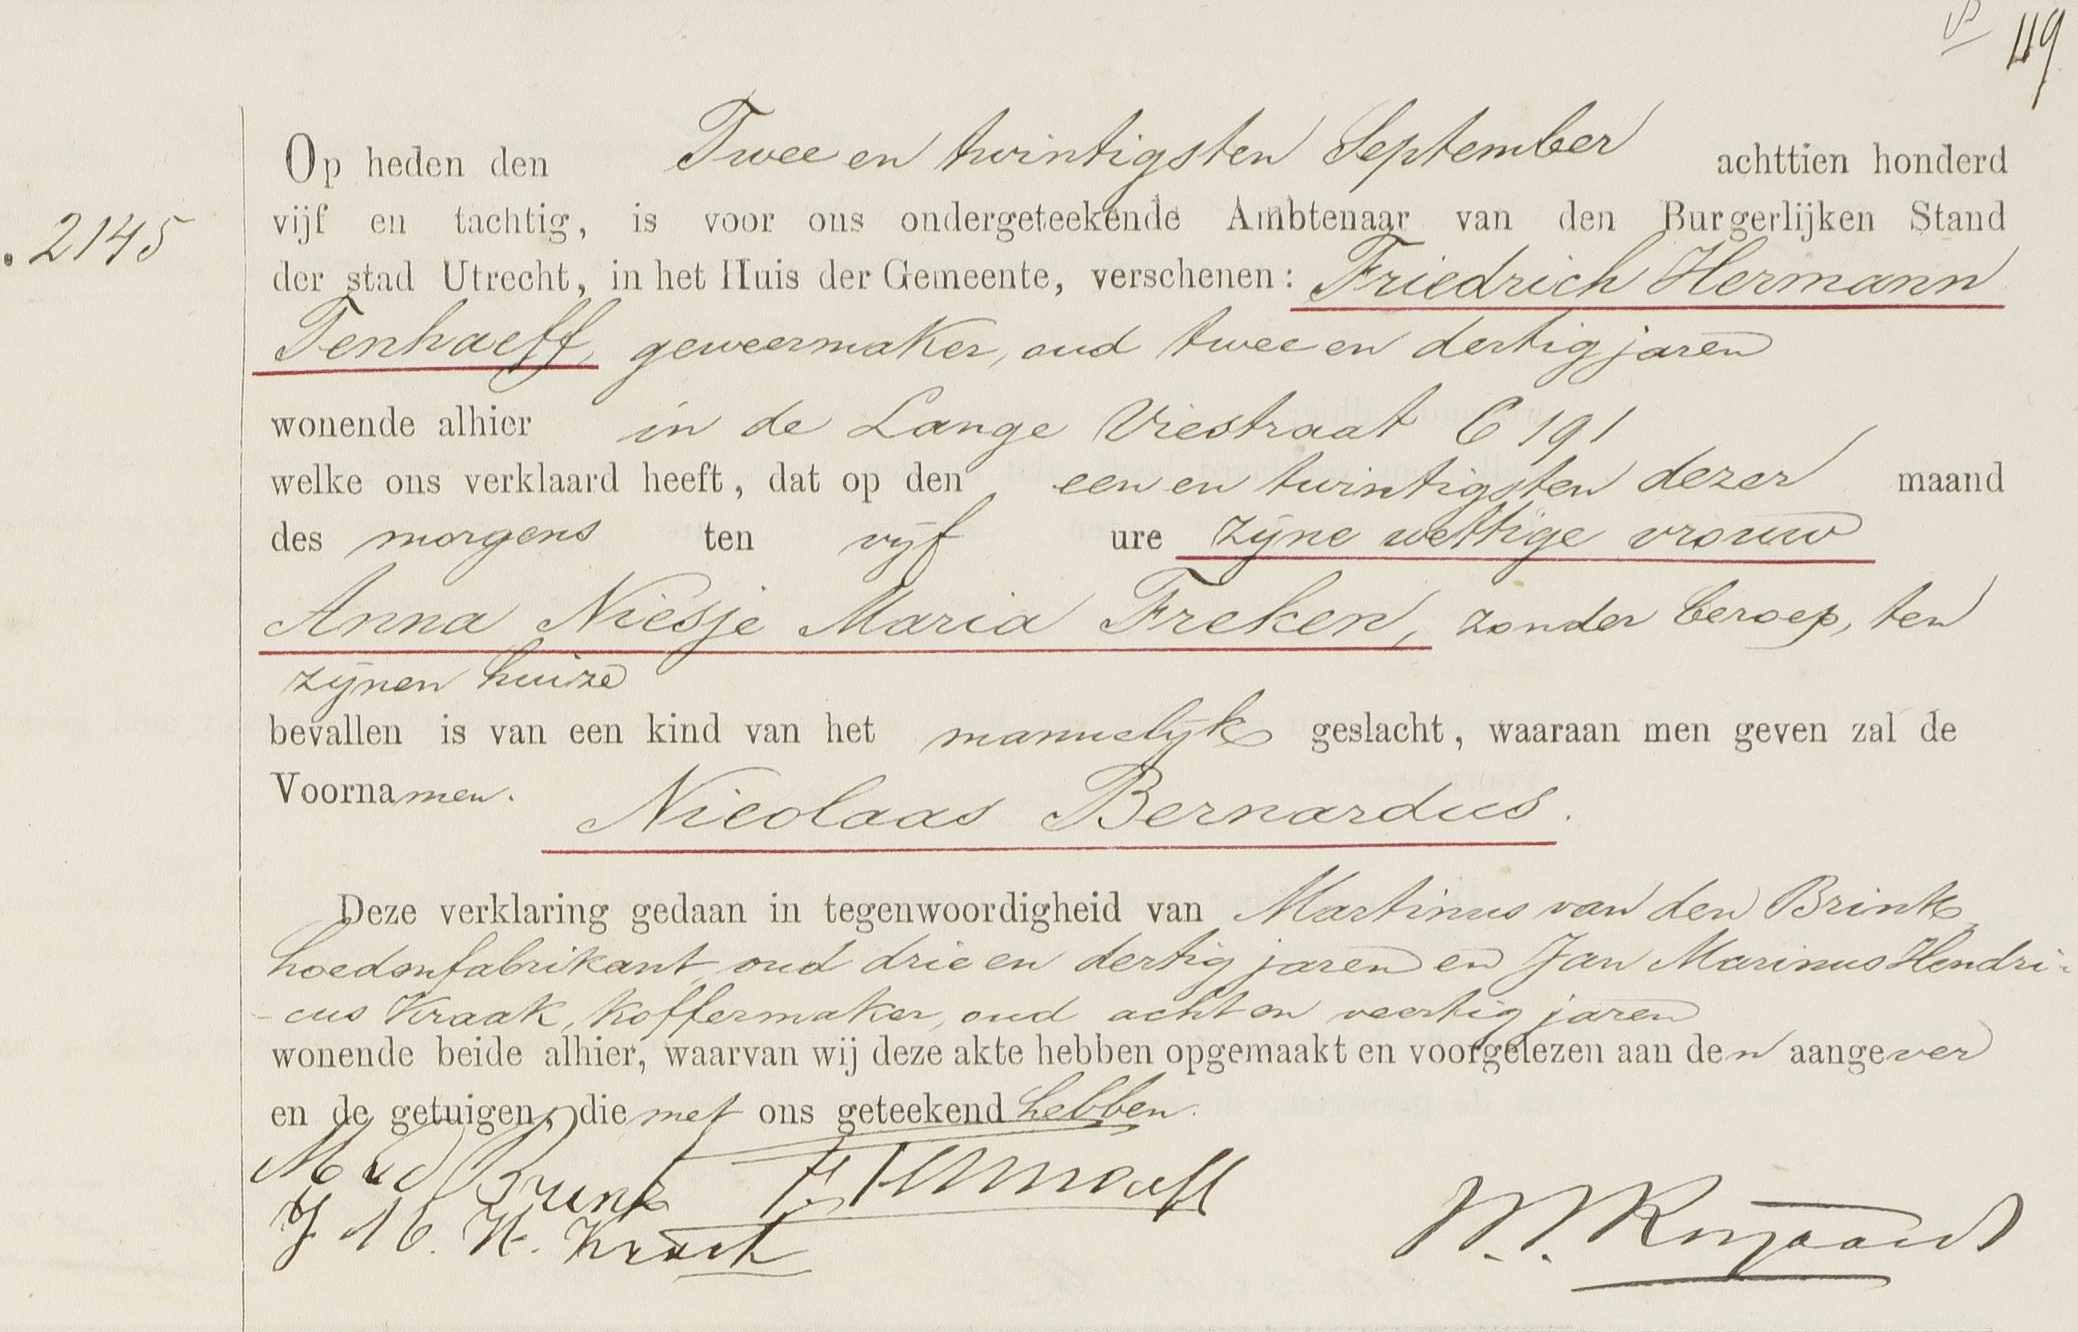 119
Op heden den Twee en twintigsten September achttien honderd
. 2145
vijf en tachtig, is voor ons ondergeteekende Ambtenaar van den Burgerlijken Stand
der stad Utrecht, in het Huis der Gemeente, verschenen: Friedrich Hermann
Tenhaeff, geweermaker, oud twee en dertig jaren
wonende alhier in de Lange Viestraat C 191
welke ons verklaard heeft, dat op den een en twintigsten dezer maand
des morgens ten vijf ure zijne wettige vrouw
Anna Niesje Maria Freken, zonder beroep, ten
zijnen huize
bevallen is van een kind van het mannelijk geslacht, waaraan men geven zal de
Voornamen.
Nicolaas Bernardus.
Deze verklaring gedaan in tegenwoordigheid van Martinus van den Brink
hoedenfabrikant, oud drie en dertig jaren en Jan Marinus Hendri-
-cus Kraak, koffermaker, oud acht en veertig jaren
wonende beide alhier, waarvan wij deze akte hebben opgemaakt en voorgelezen aan den aangever
en de getuigen, die met ons geteekend hebben.
M v d Brink F. H. Tenhaeff
J. M. H. Kraak